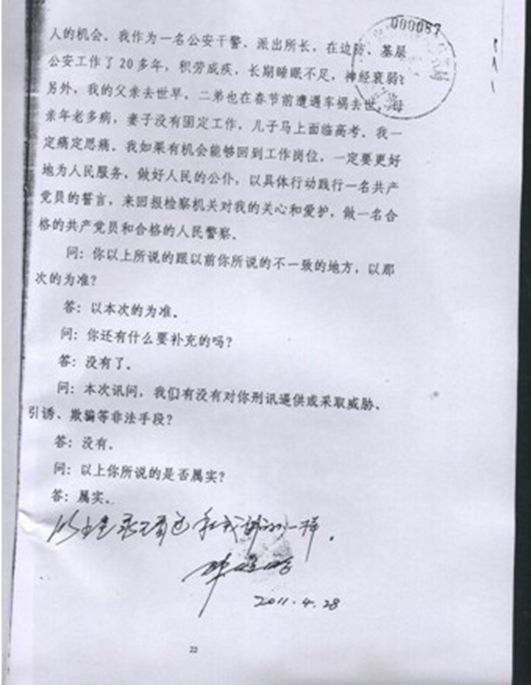 000087
人的机会。我作为一名公安干警、派出所长,在边防、基层
公安工作了20多年,积劳成疾,长期睡眠不足,神经衰弱;
另外,我的父亲去世早,二弟也在春节前遭遇车祸去世,母
亲年老多病,妻子没有固定工作,儿子马上面临高考。我一
定痛定思痛。我如果有机会能够回到工作岗位,一定要更好
地为人民服务,做好人民的公仆,以具体行动践行一名共产
党员的誓言,来回报检察机关对我的关心和爱护,做一名合
格的共产党员和合格的人民警察。
问:你以上所说的跟以前你所说的不一致的地方,以那
次的为准?
答:以本次的为准。
问:你还有什么要补充的吗?
答:没有了。
问:本次讯问,我们有没有对你刑讯逼供或采取威胁、
引诱、欺骗等非法手段?
答:没有。
问:以上你所说的是否属实?
答:属实。
以上笔录已看过和我讲的一样。
2011.4.28
22